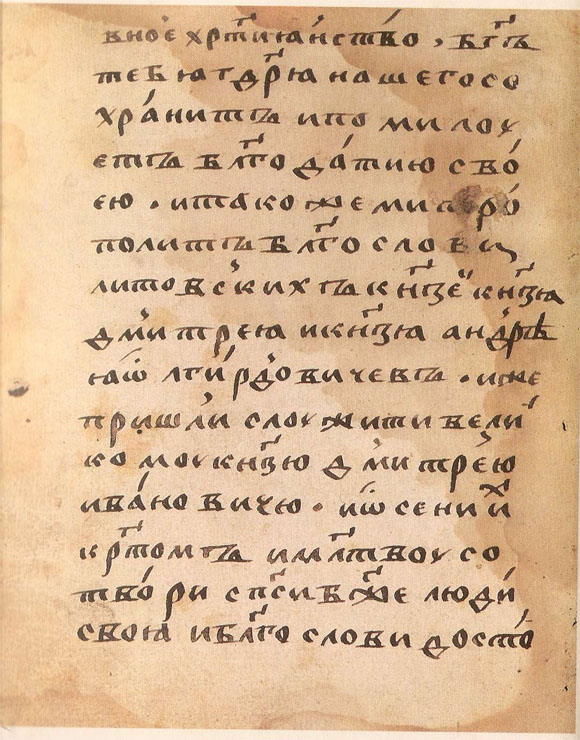 вное хрⷭ҇тиꙗ́нство , бг҃ъ
тебѧ гдⷭ҇рѧ нашего со
хра́нитъ и по милоу
етъ бл҃года́тию сво́
ею . и тако же митро́
политъ бл҃гослови
литовских̾ъ кн҃зе́и кн҃зѧ
дми́треꙗ и кн҃зѧ андрѣ
ꙗ ѡлги́рдовичевъ . иже
пришли́ слоужити вели́
комоу кн҃зю дми́тре́ю
ива́новичю . и ѡсени и́хъ
крⷭ҇томъ и мл҃твоу со
тво́ри сп҃си бж҃е люди́
своꙗ и бл҃гослови досто́